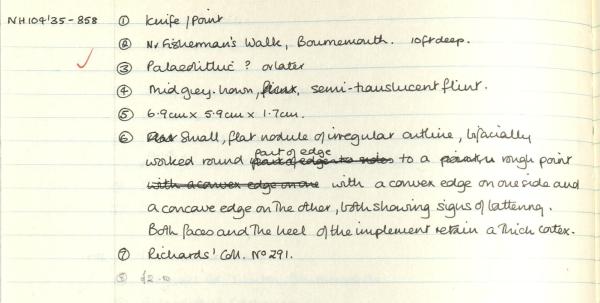 NH104'35-858 ① Knife/Point
② Nr Fisherman's Walk, Bournemouth. 10ft deep.
③ Palaeolithic ? or later
④ Mid grey-brown, flint, semi-translucent flint.
⑤ 6.9cm x 5.9cm x 1.7cm.
⑥ Flat Small, flat nodule of irregular outline, bifacially
part of edge
worked round part of edge to sides to a point rough point
with a convex edge on one with a convex edge on one side and
a concave edge on the other, both showing signs of battering.
Both faces and the heel of the implement retain a thick cortex.
⑦ Richards' Coll. No 291.
⑧ £2.0